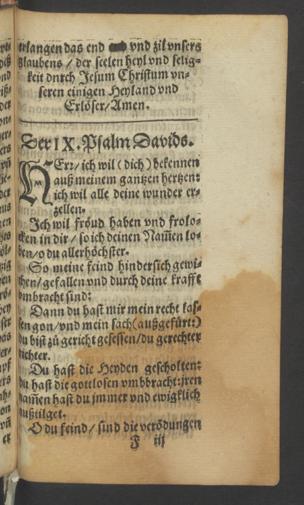 erlangen das end vnd zil vnsers
glaubens / der seelen heyl vnd selig-
keit durch Jesum Christum vn-
seren einigen Heyland vnd
Erlöser / Amen.
Der IX. Psalm Davids.
HErr / ich wil (dich) bekennen
auß meinem gantzen hertzen:
ich wil alle deine wunder er-
zellen.
Ich wil fröud haben vnd frolo-
cken in dir / so ich deinen Nam̃en lo-
ben / o du allerhöchster.
So meine feind hindersich gewi-
chen / gefallen vnd durch deine krafft
vmbracht sind:
Dann du hast mir mein recht las-
sen gon / vnd mein sach (außgefürt:)
du bist zů gericht gesessen / du gerechter
richter.
Du hast die Heyden gescholten:
du hast die gottlosen vmbracht: jren
nam̃en hast du jmmer vnd ewigklich
ußtilget.
O du feind / sind die verödungen
F iij